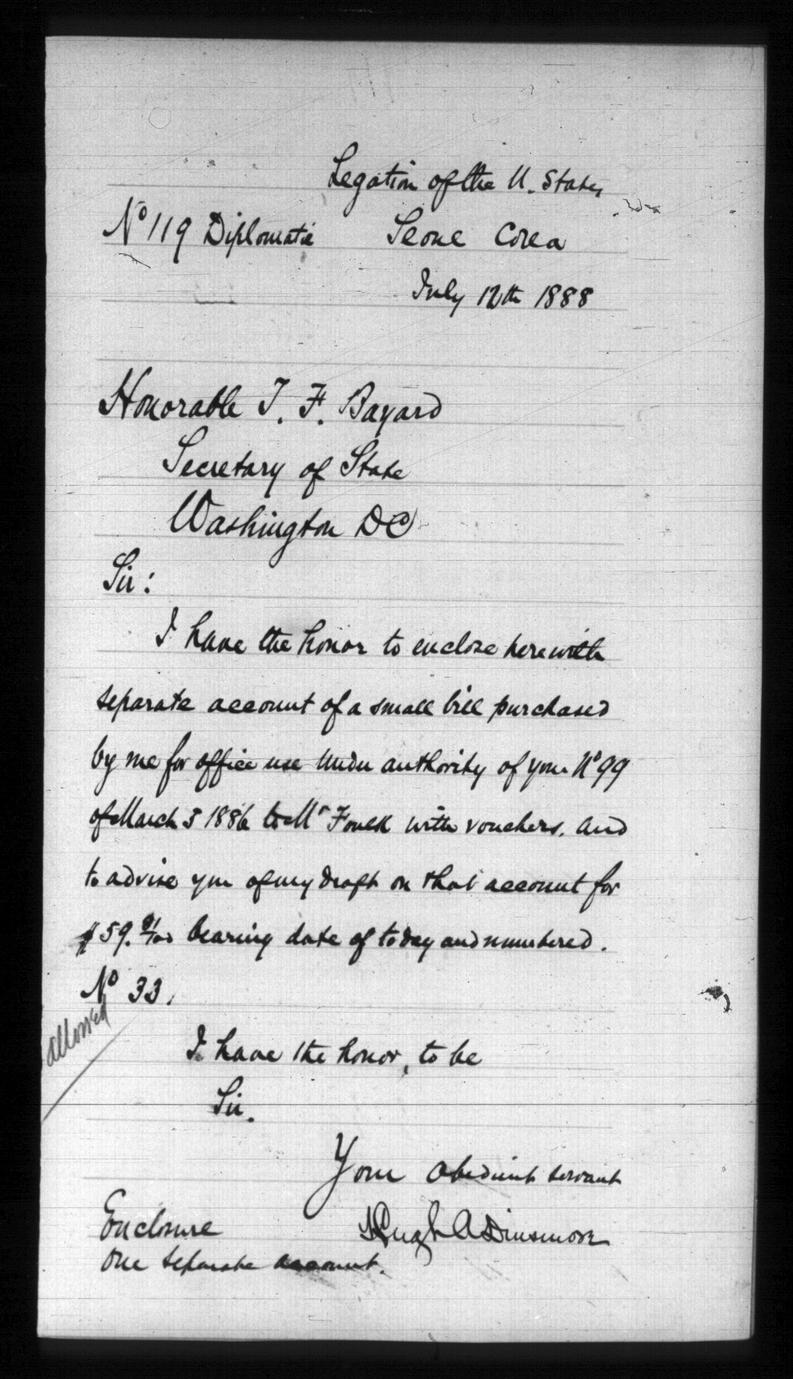 Legation of the U. States
Nº 119 Diplomatic Seoul Corea
July 12th 1888
Honorable T. F. Bayard
Secretary of State
Washington DC
Sir:
I have the honor to enclose herewith
separate account of a small bill purchased
by me for office use under authority of your Nº 99
of March 5 1886 to Mr Foulk with vouchers. and
to advise you of my draft on that account for
$59. 91/100 bearing date of today and numbered.
Nº 33.
allowed
I have the honor, to be
Sir.
Your obedient servant
Hugh A Dinsmore
Enclosure
One separate account.